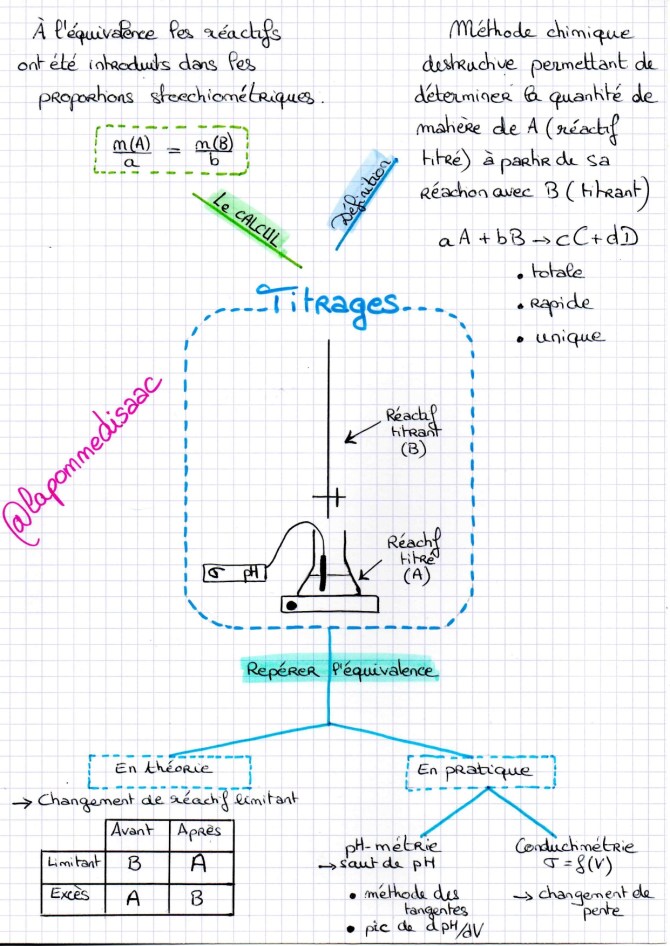 À l'équivalence les réactifs
ont été introduits dans les
proportions stoechiométriques.
n(A)/a = n(B)/b
Le CALCUL
Méthode chimique
destructive permettant de
déterminer la quantité de
matière de A (réactif
titré) à partir de sa
Réaction avec B (titrant)
aA + bB → cC + dD
• totale
• rapide
• unique
Définition
Titrages
Réactif
titrant
(B)
Réactif
titré
(A)
σ pH
@lapommedisaac
Repérer l'équivalence
En théorie
→ Changement de réactif limitant
Avant Après
Limitant B A
Excès A B
En pratique
pH-métrie
→ saut de pH
• méthode des
tangentes
• pic de dpH/dV
Conductimétrie
σ = f(V)
→ changement de
pente